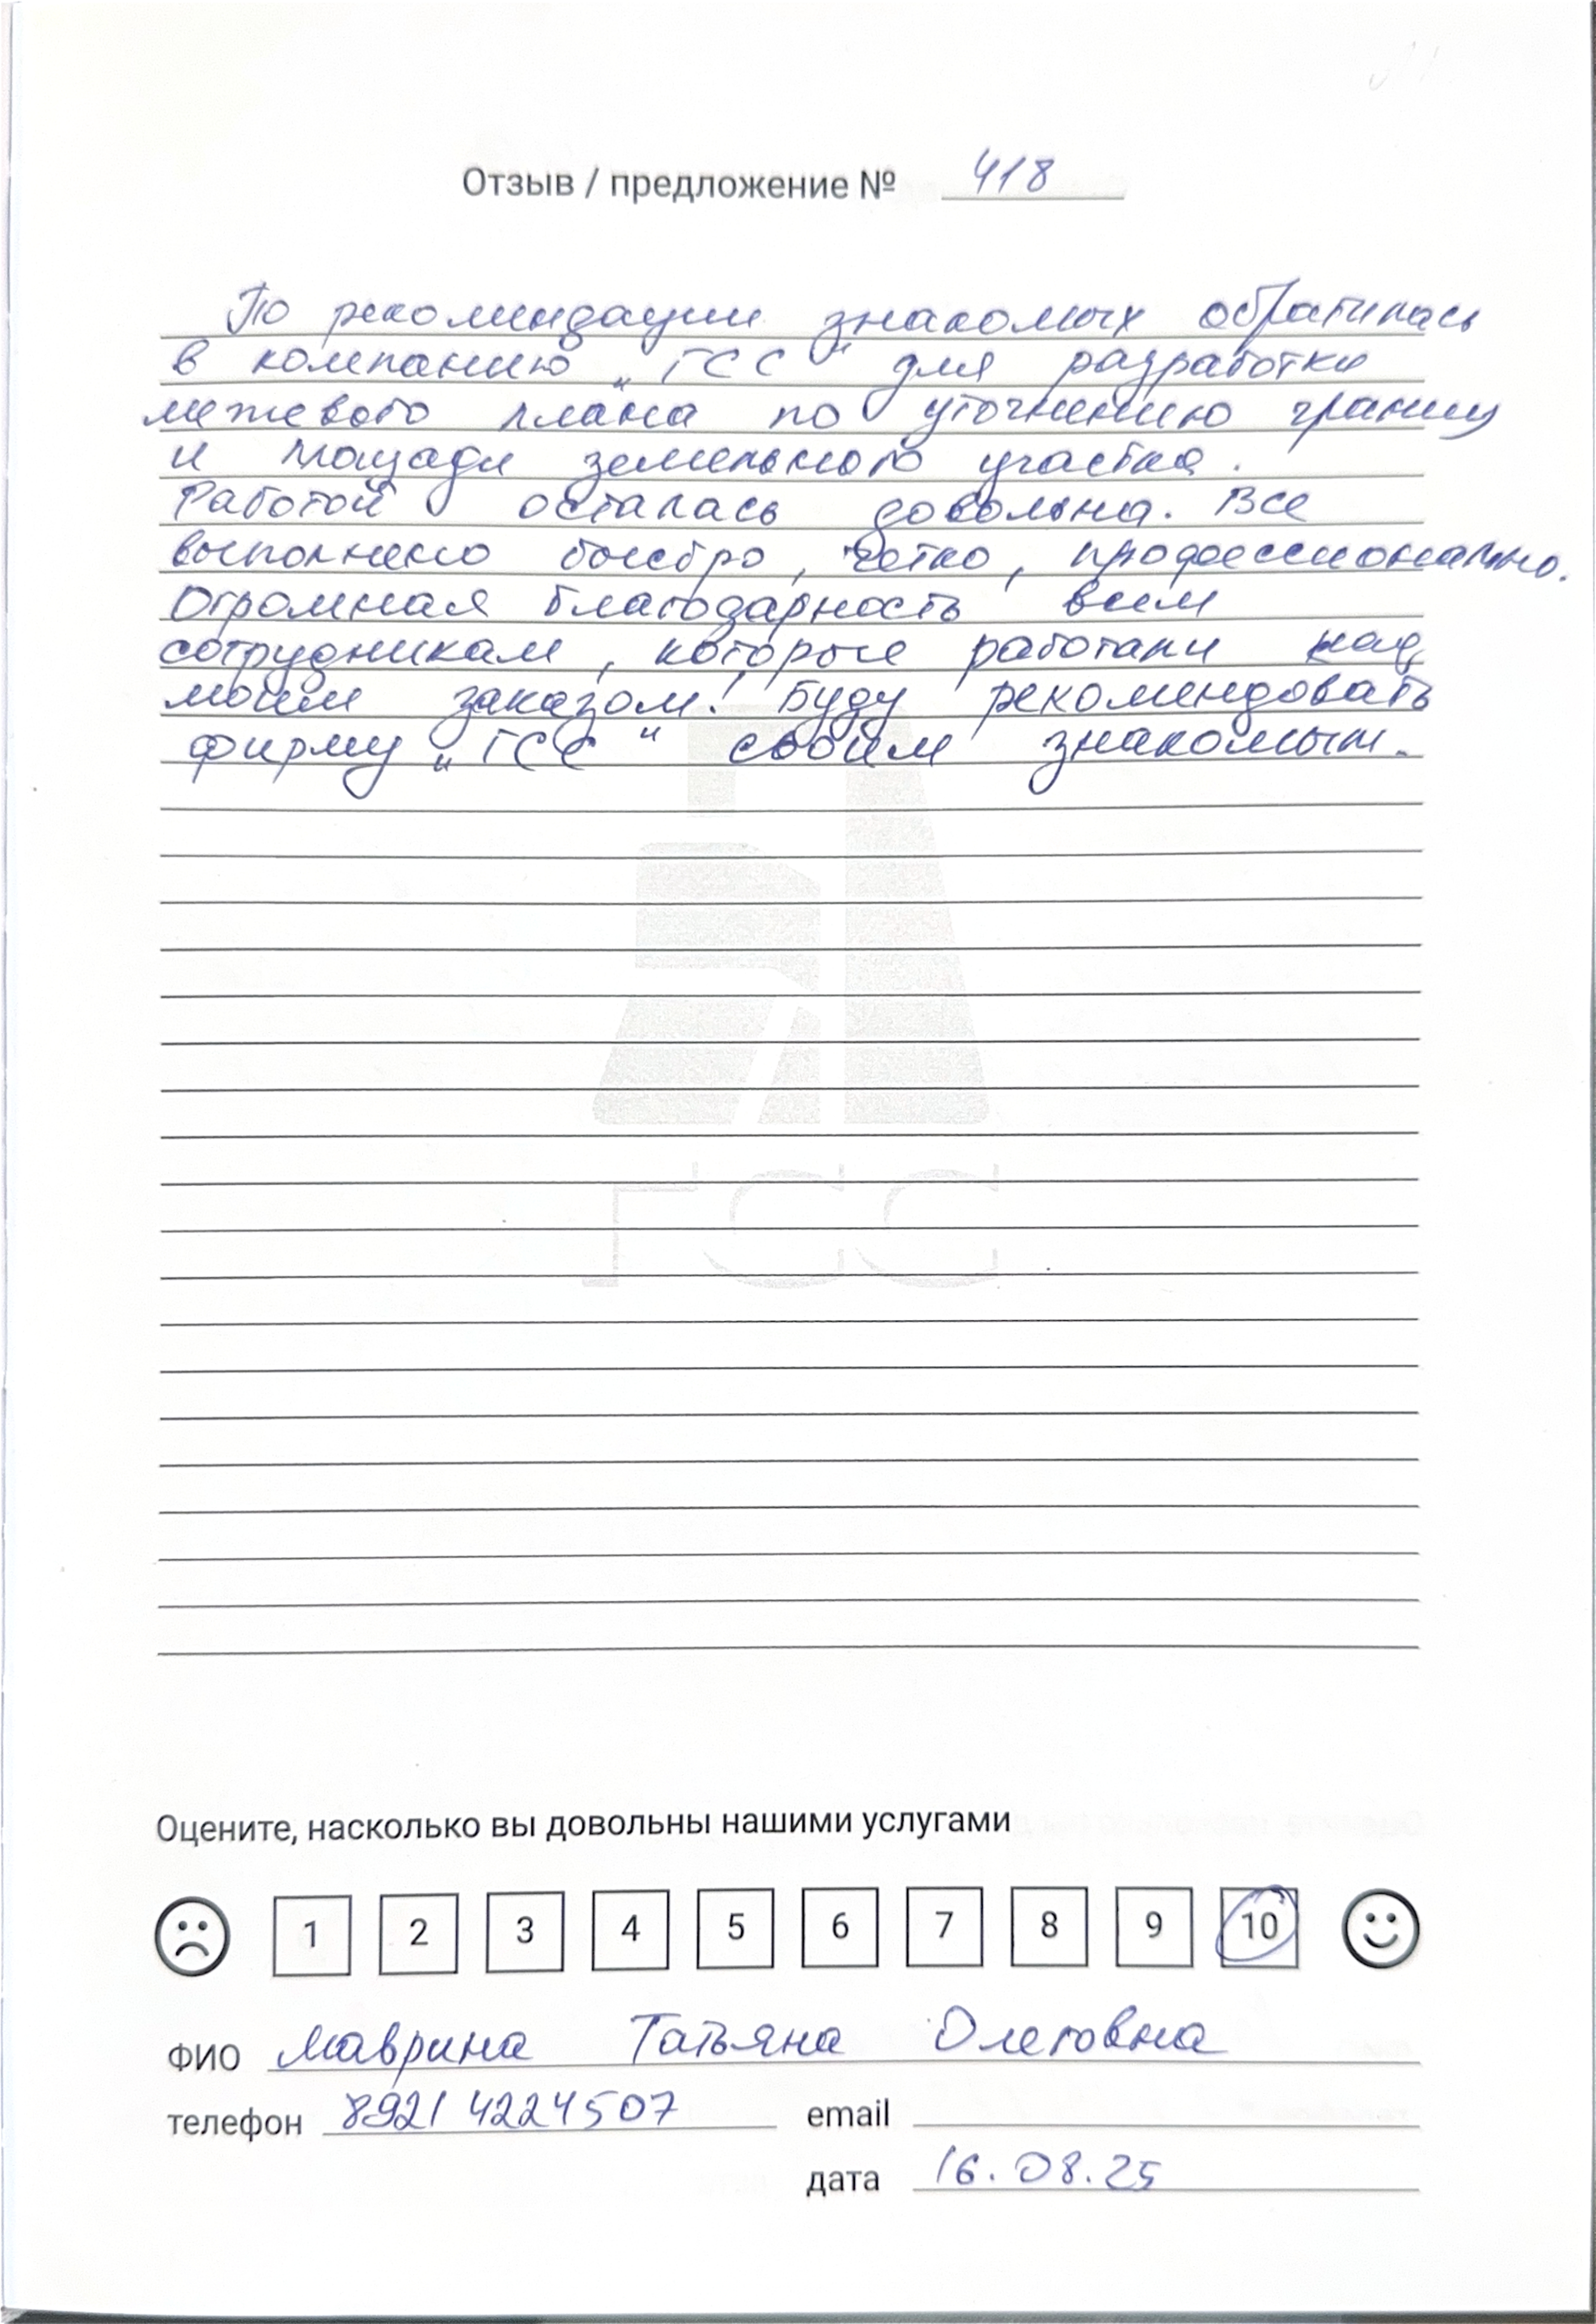 Отзыв / предложение № 418
По рекомендации знакомых обратилась
в компанию „ГСС" для разработки
межевого плана по уточнению границ
и площади земельного участка.
Работой осталась довольна. Все
выполнено быстро, четко, профессионально.
Огромная благодарность всем
сотрудникам, которые работали над
моим заказом! Буду рекомендовать
фирму „ГСС" своим знакомым.
ГСС
Оцените, насколько вы довольны нашими услугами
1 2 3 4 5 6 7 8 9 10
ФИО Маврина Татьяна Олеговна
телефон 8921 4224507 email
дата 16.08.25